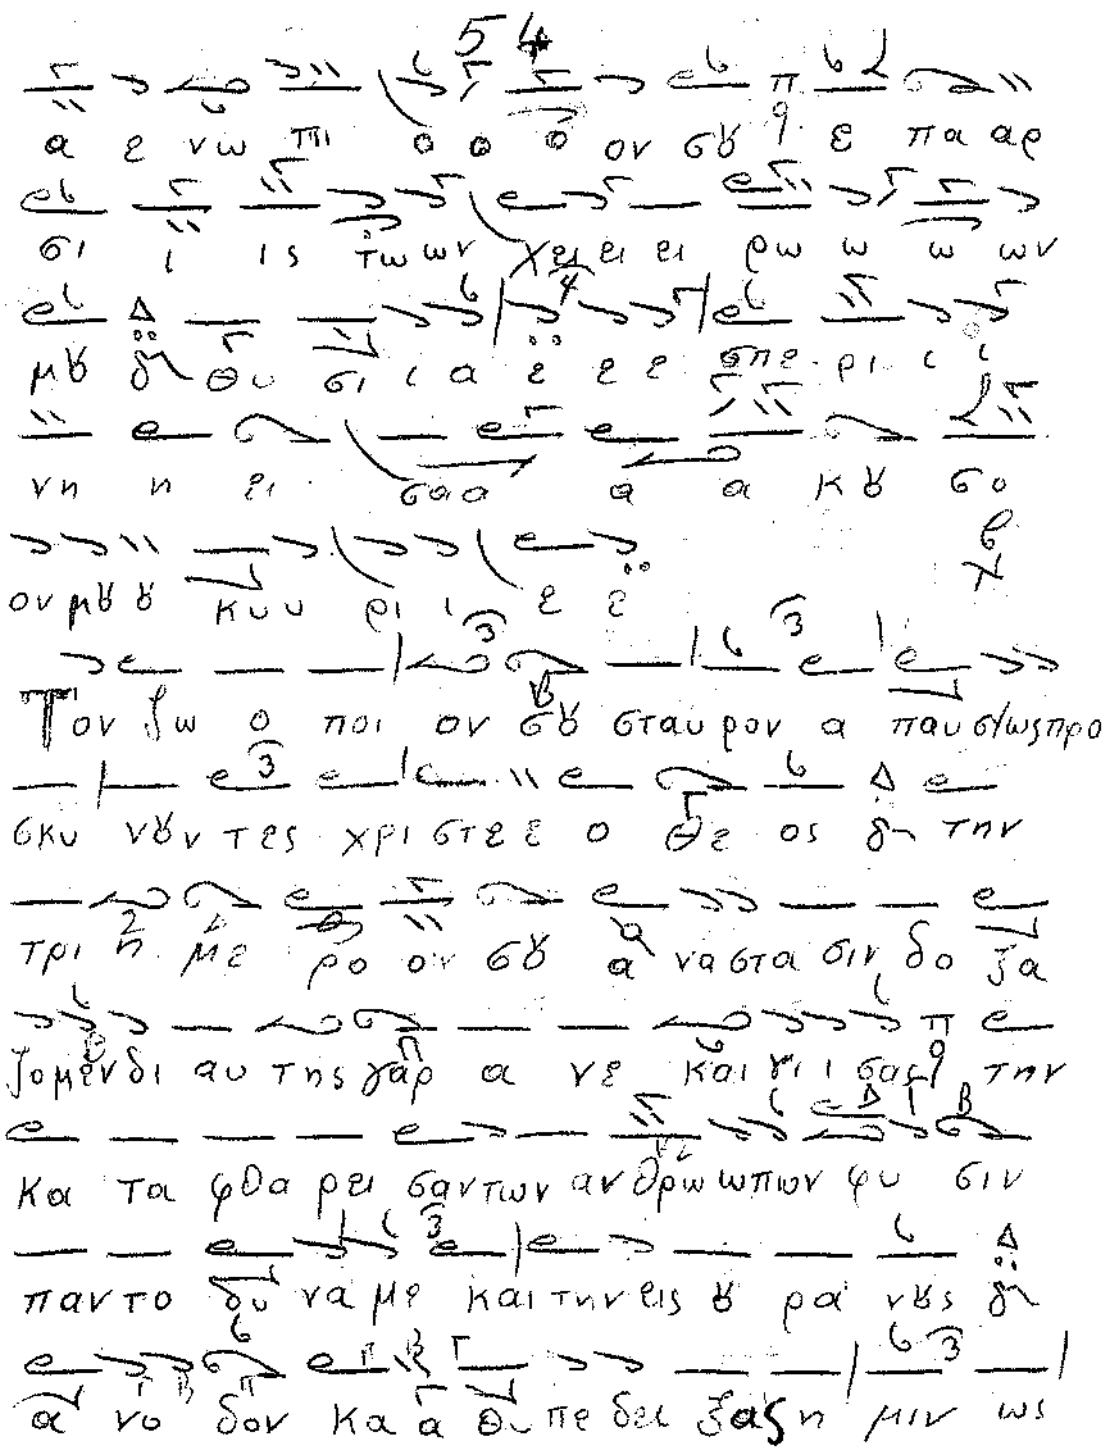 54
α ε νω πι ο ο ο ον σȣ ε πα αρ
σι ι ις τω ων χει ει ει ρω ω ω ων
μȣ θυ σι ι α ε ε ε σπε ρι ι ι
νη η ει σαα α α κ ȣ σο
ον μȣ ȣ κυυ ρι ι ε ε
Τον ζω ο ποι ον σȣ σταυ ρον α παυ στως προ
σκυ νȣν τες χρι στε ε ο θε ος την
τρι η με ρο ον σȣ α να στα σιν δο ξα
ζομεν δι αυ της γαρ α νε και νι ι σας την
κα τα φθα ρει σαν των αν θρω ωπων φυ σιν
παν το δυ να με και την εις ȣ ρα νȣς
α νο δον κα α θυ πε δει ξας η μιν ως